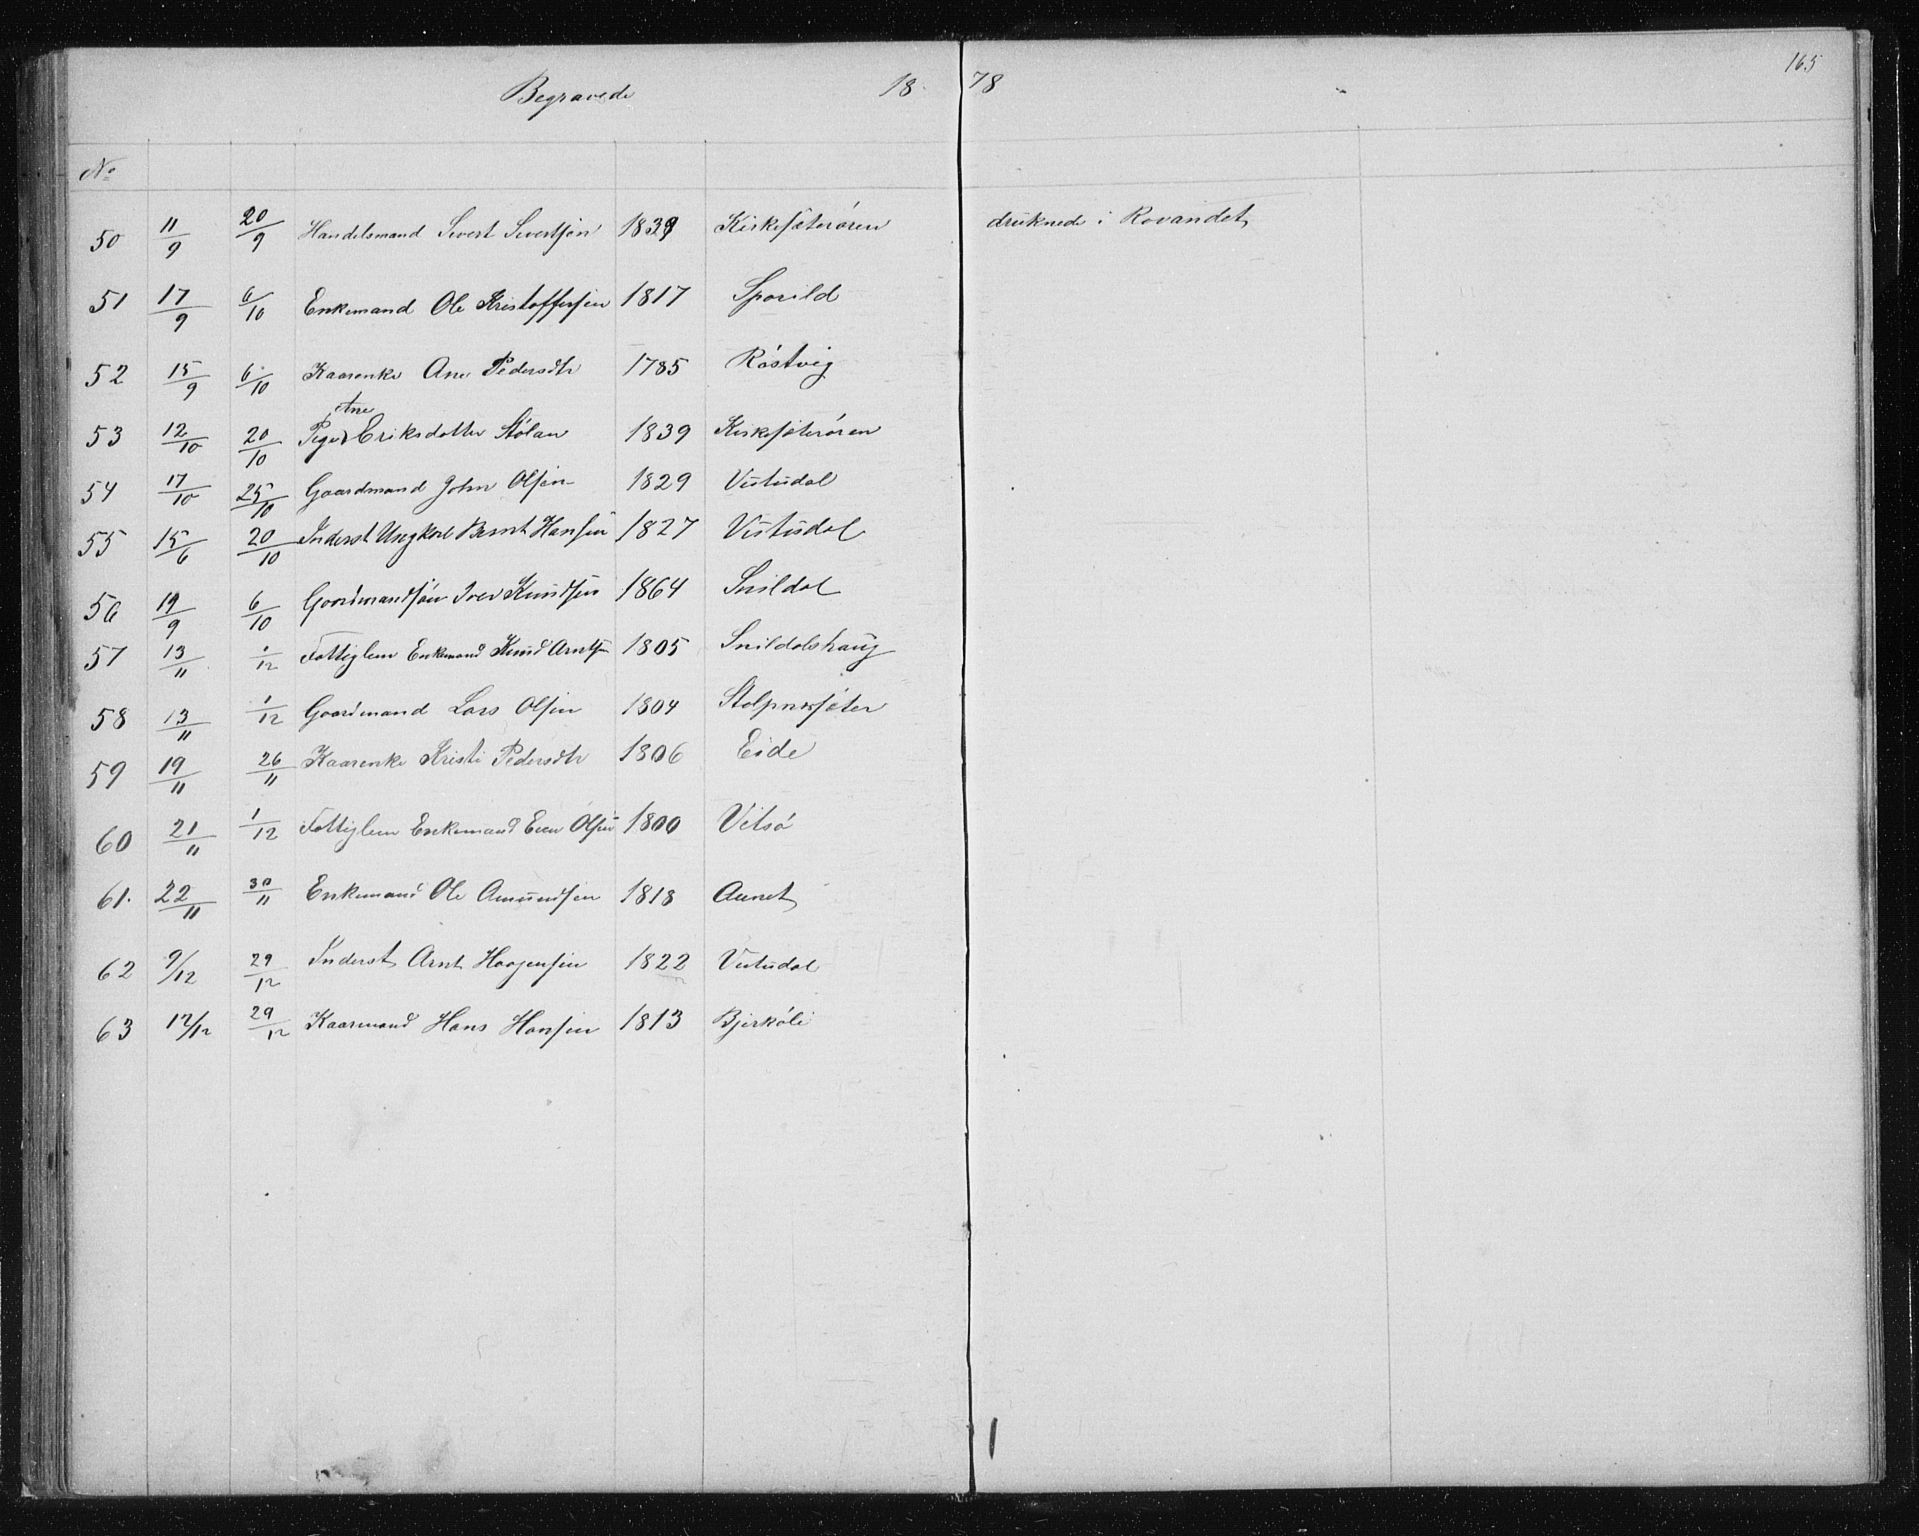 Begravede 18 78 165
No
50 11/9 20/9 Handelsmand Sivert Sivertsøn 1839 Kirksæterøren druknede i Rovandet
51 17/9 6/10 Enkemand Ole Kristoffersen 1817 Sporild
52 15/9 6/10 Kaarenke Ane Pedersdtr 1785 Röstvig
Ane
53 12/10 20/10 Pige Eriksdotter Stølan 1839 Kirksæterøren
54 17/10 25/10 Gaardmand John Olsen 1829 Vinddal
55 15/6 20/10 Inderst Ungkarl Bernt Hansen 1827
56 19/9 6/10 Gaardmandsøn Iver Knudsen 1864 Snildal
57 13/11 1/12 Fattiglem Enkemand Knud Arntsen 1805 Snildalshaug
58 13/11 1/12 Gaardmand Lars Olsen 1804 Stolpnessæter
59 19/11 26/11 Kaarenke Kristi Pedersdtr 1806 Eide
60 21/11 1/12 Fattiglem Enkemand Even Olsen 1800 Vitsö
61. 22/11 30/11 Enkemand Ole Amundsen 1818 Aunet
62 9/12 29/12 Inderst Arnt Haagensen 1822
63 12/12 29/12 Kaarmand Hans Hansen 1813 Bjerköli